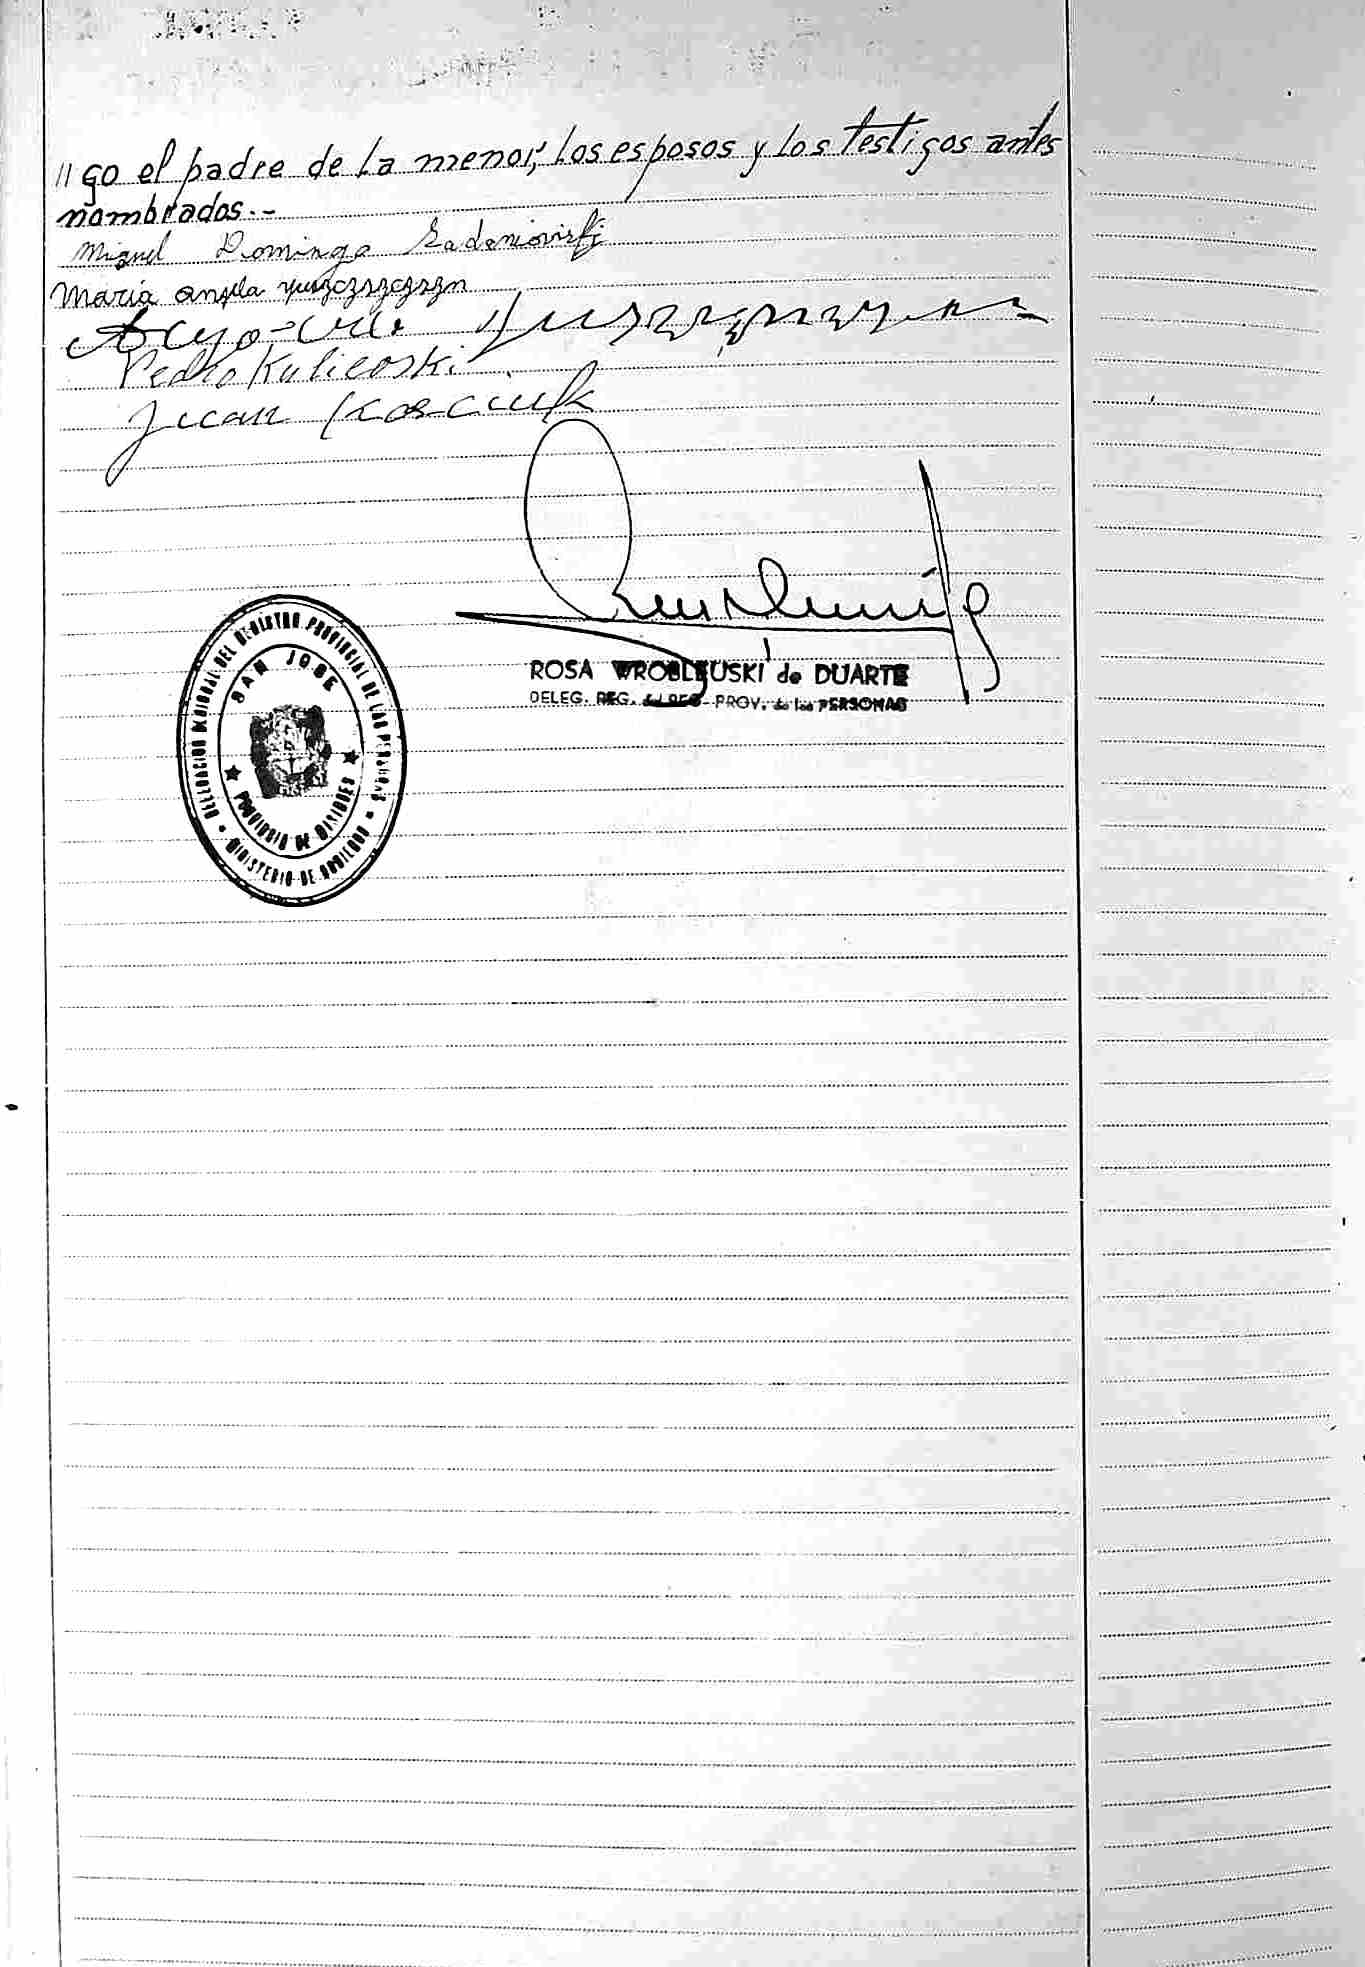 "go el padre de la menor; los esposos y los testigos antes
nombrados.-
Miguel Domingo
Maria Angela
Pedro Kulicoski
Juan
ROSA WROBLEUSKI de DUARTE
DELEG. REG. del REG. PROV. de las PERSONAS
DELEGACION REGIONAL DEL REGISTRO PROVINCIAL DE LAS PERSONAS
SAN JOSE
PROVINCIA DE MISIONES
MINISTERIO DE GOBIERNO